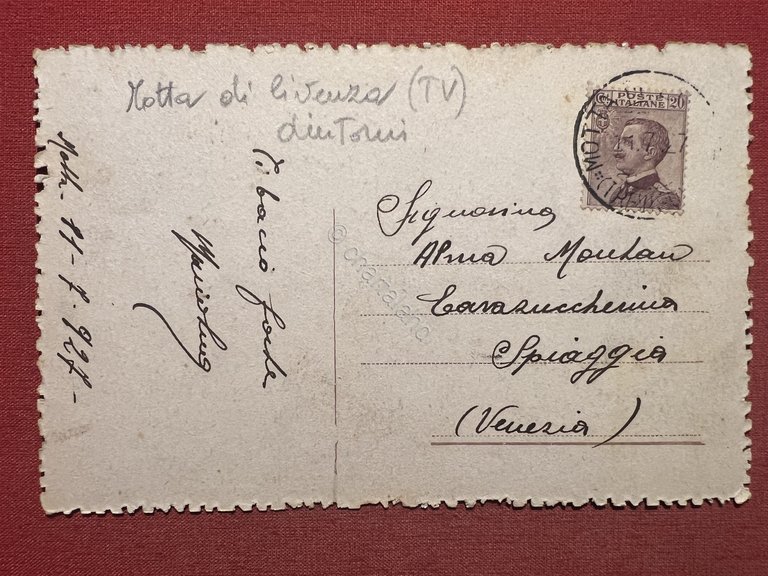 Motta di Livenza (TV)
dintorni
POSTE
ITALIANE 20
MOTTA
Signorina
Alma Montan
Cavazuccherina
Spiaggia
(Venezia)
Ti bacio forte
Motta - 11 - 7 - 927 -